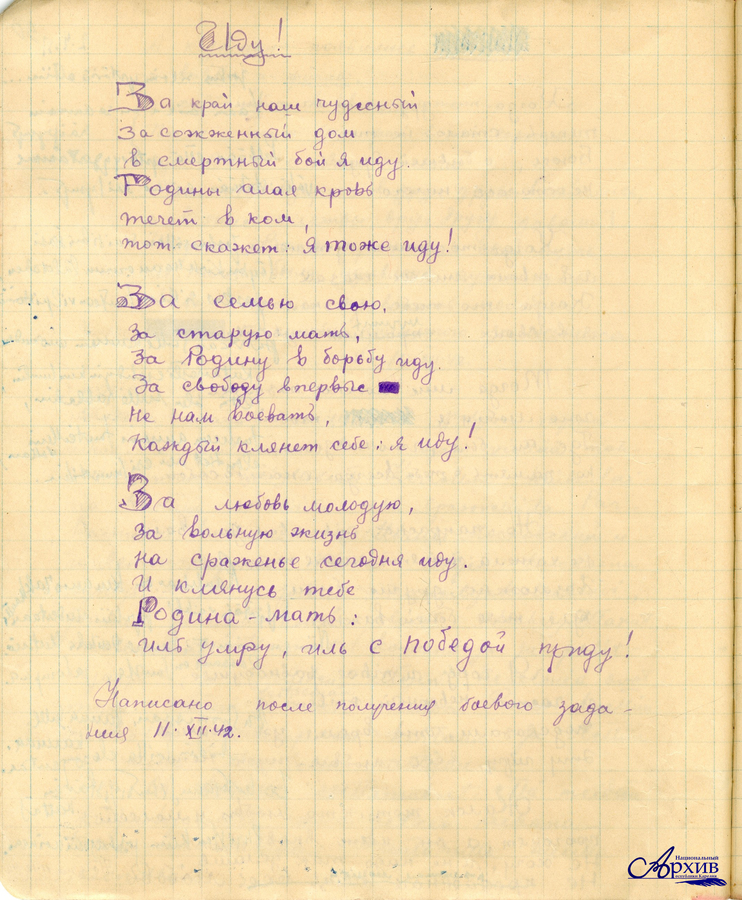 Иду!
За край наш чудесный
За сожженный дом
в смертный бой я иду.
Родины алая кровь
течет в ком,
тот скажет: Я тоже иду!
За семью свою,
За старую мать,
За Родину в борьбу иду.
За свободу впервые
не нам воевать,
Каждый клянет себе: я иду!
За любовь молодую,
За вольную жизнь
на сраженье сегодня иду.
И клянусь тебе
Родина-мать:
иль умру, иль с победой приду!
Написано после получения боевого зада-
ния 11.XII.42.
Национальный
АРХИВ
республики Карелия